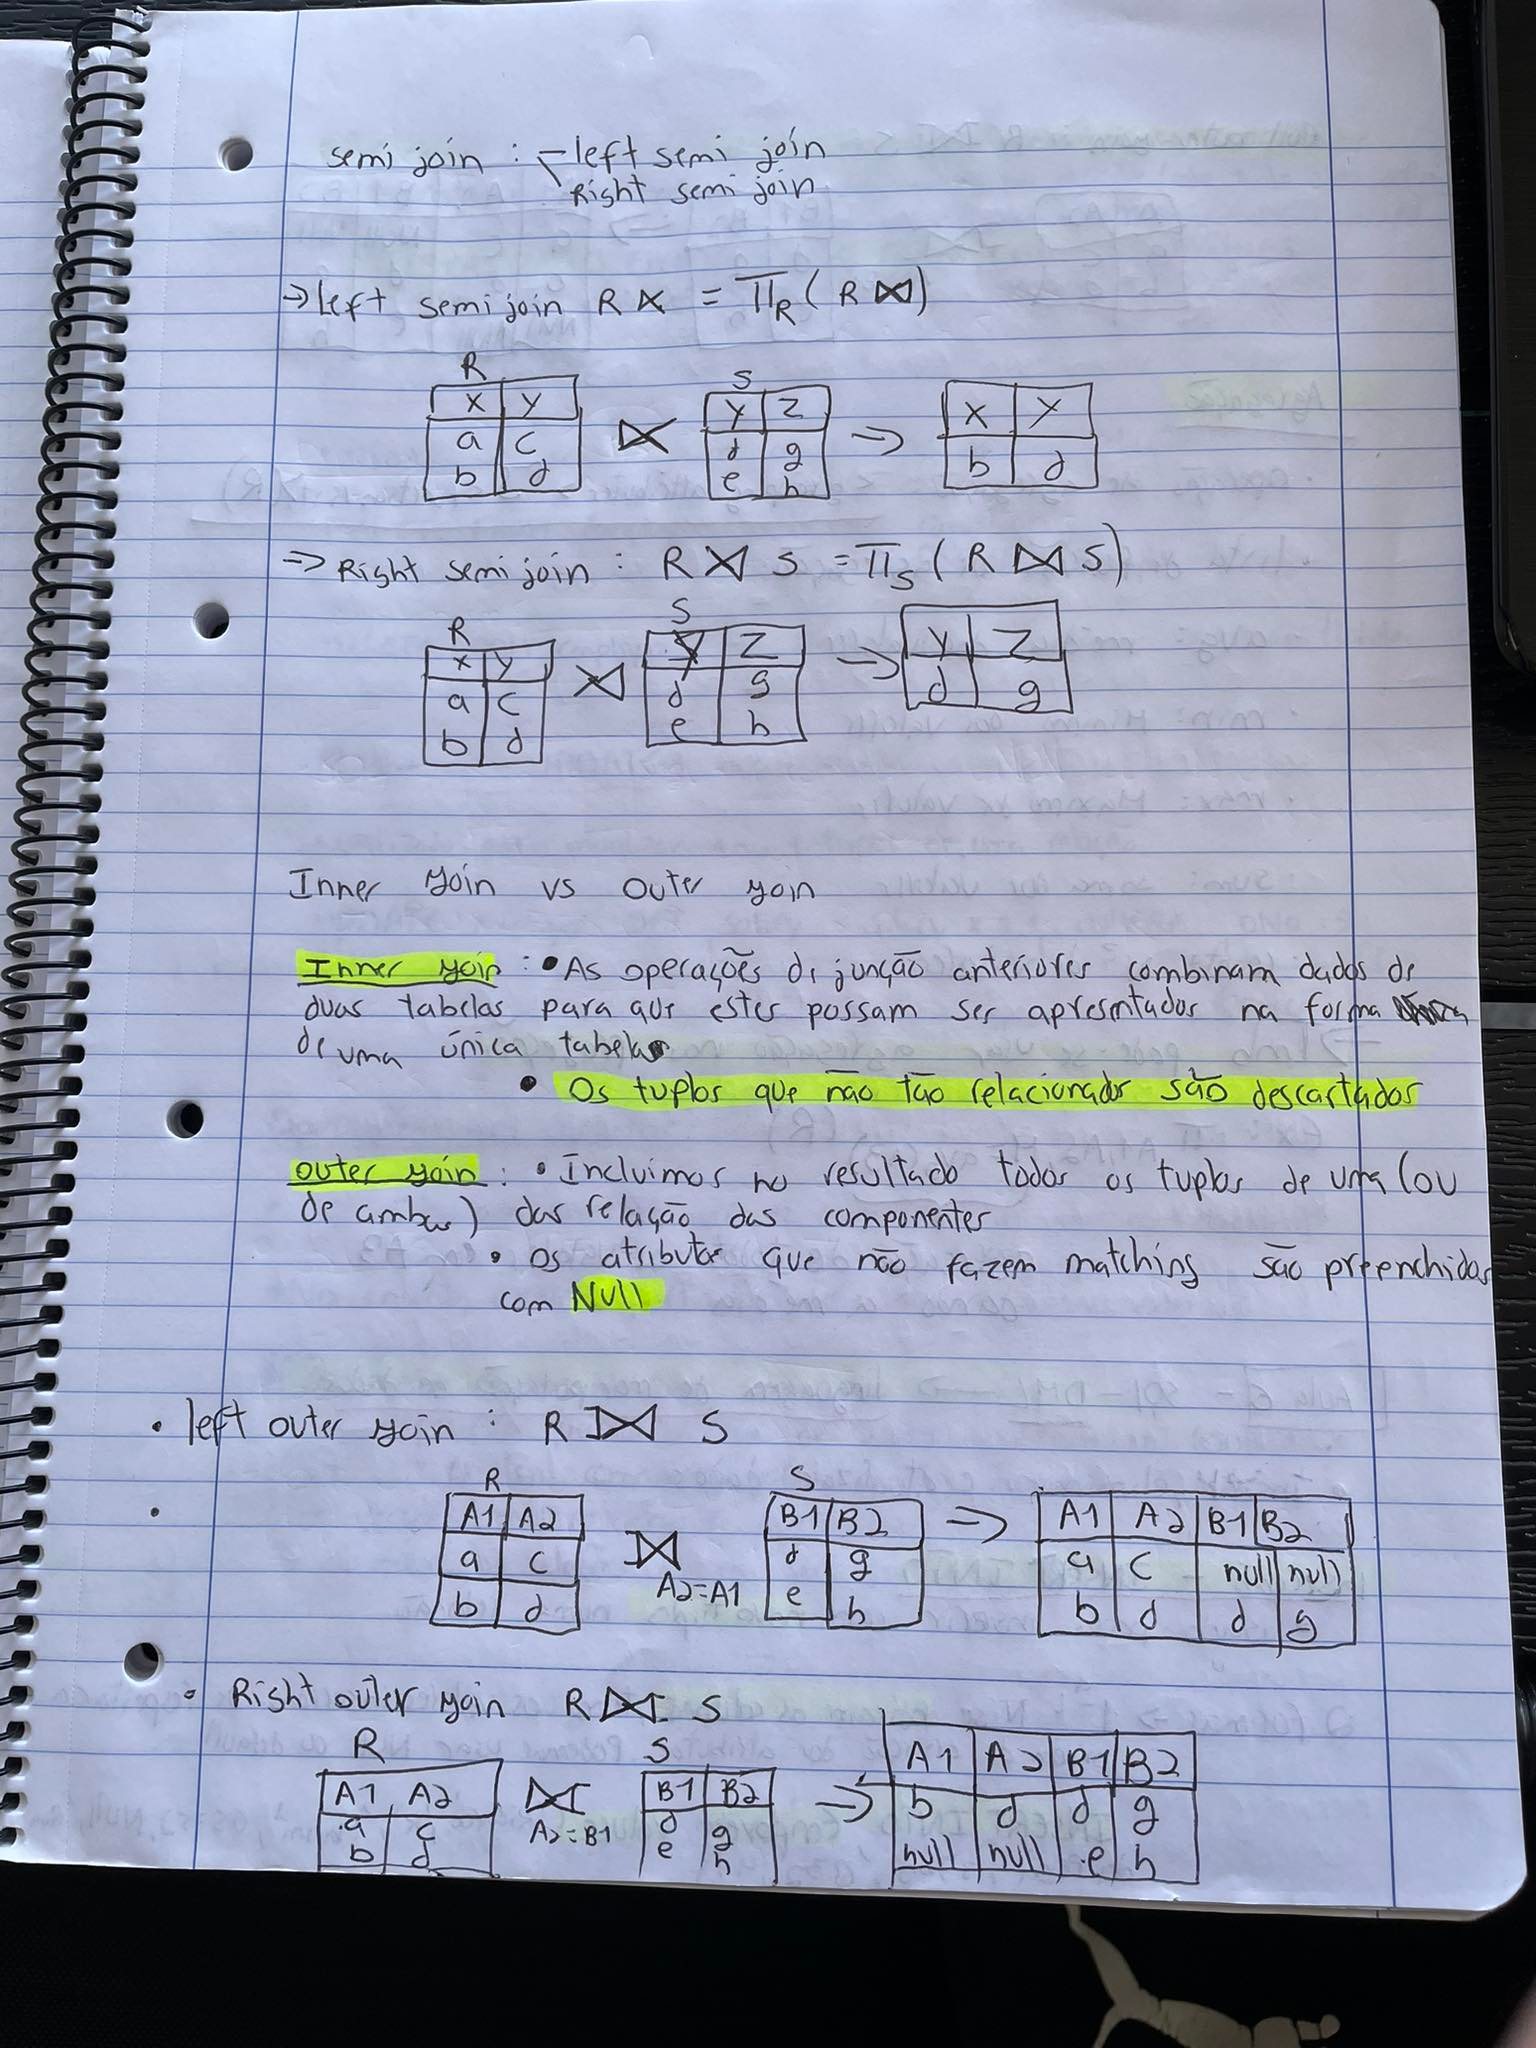 semi join : - left semi join
Right semi join
→ Left semi join R ⋉ = π_R ( R ⋈ )
R
S
x y
Y Z
X Y
a c
⋉
d g
→
b d
b d
e h
→ Right semi join : R ⋊ S = π_S ( R ⋈ S )
R
S
x y
Y Z
Y Z
a c
⋊
d g
→
d g
b d
e h
Inner yoin vs outer yoin
Inner yoin : • As operações de junção anteriores combinam dados de
duas tabelas para que estes possam ser apresentados na forma
de uma única tabela
• Os tuplos que não tão relacionados são descartados
outer yoin : • Incluimos no resultado todos os tuplos de uma (ou
de ambas) das relação das componentes
• Os atributos que não fazem matching são preenchidos
com Null
• left outer yoin : R ⟕ S
R
S
A1 A2
B1 B2
→
A1 A2 B1 B2
a c
⟕
d g
a c null null
A2=A1
b d
e h
b d d g
• Right outer yoin R ⟖ S
R
S
A1 A2
⟖
B1 B2
→
A1 A2 B1 B2
A2=B1
a c
d g
b d d g
b d
e h
null null e h